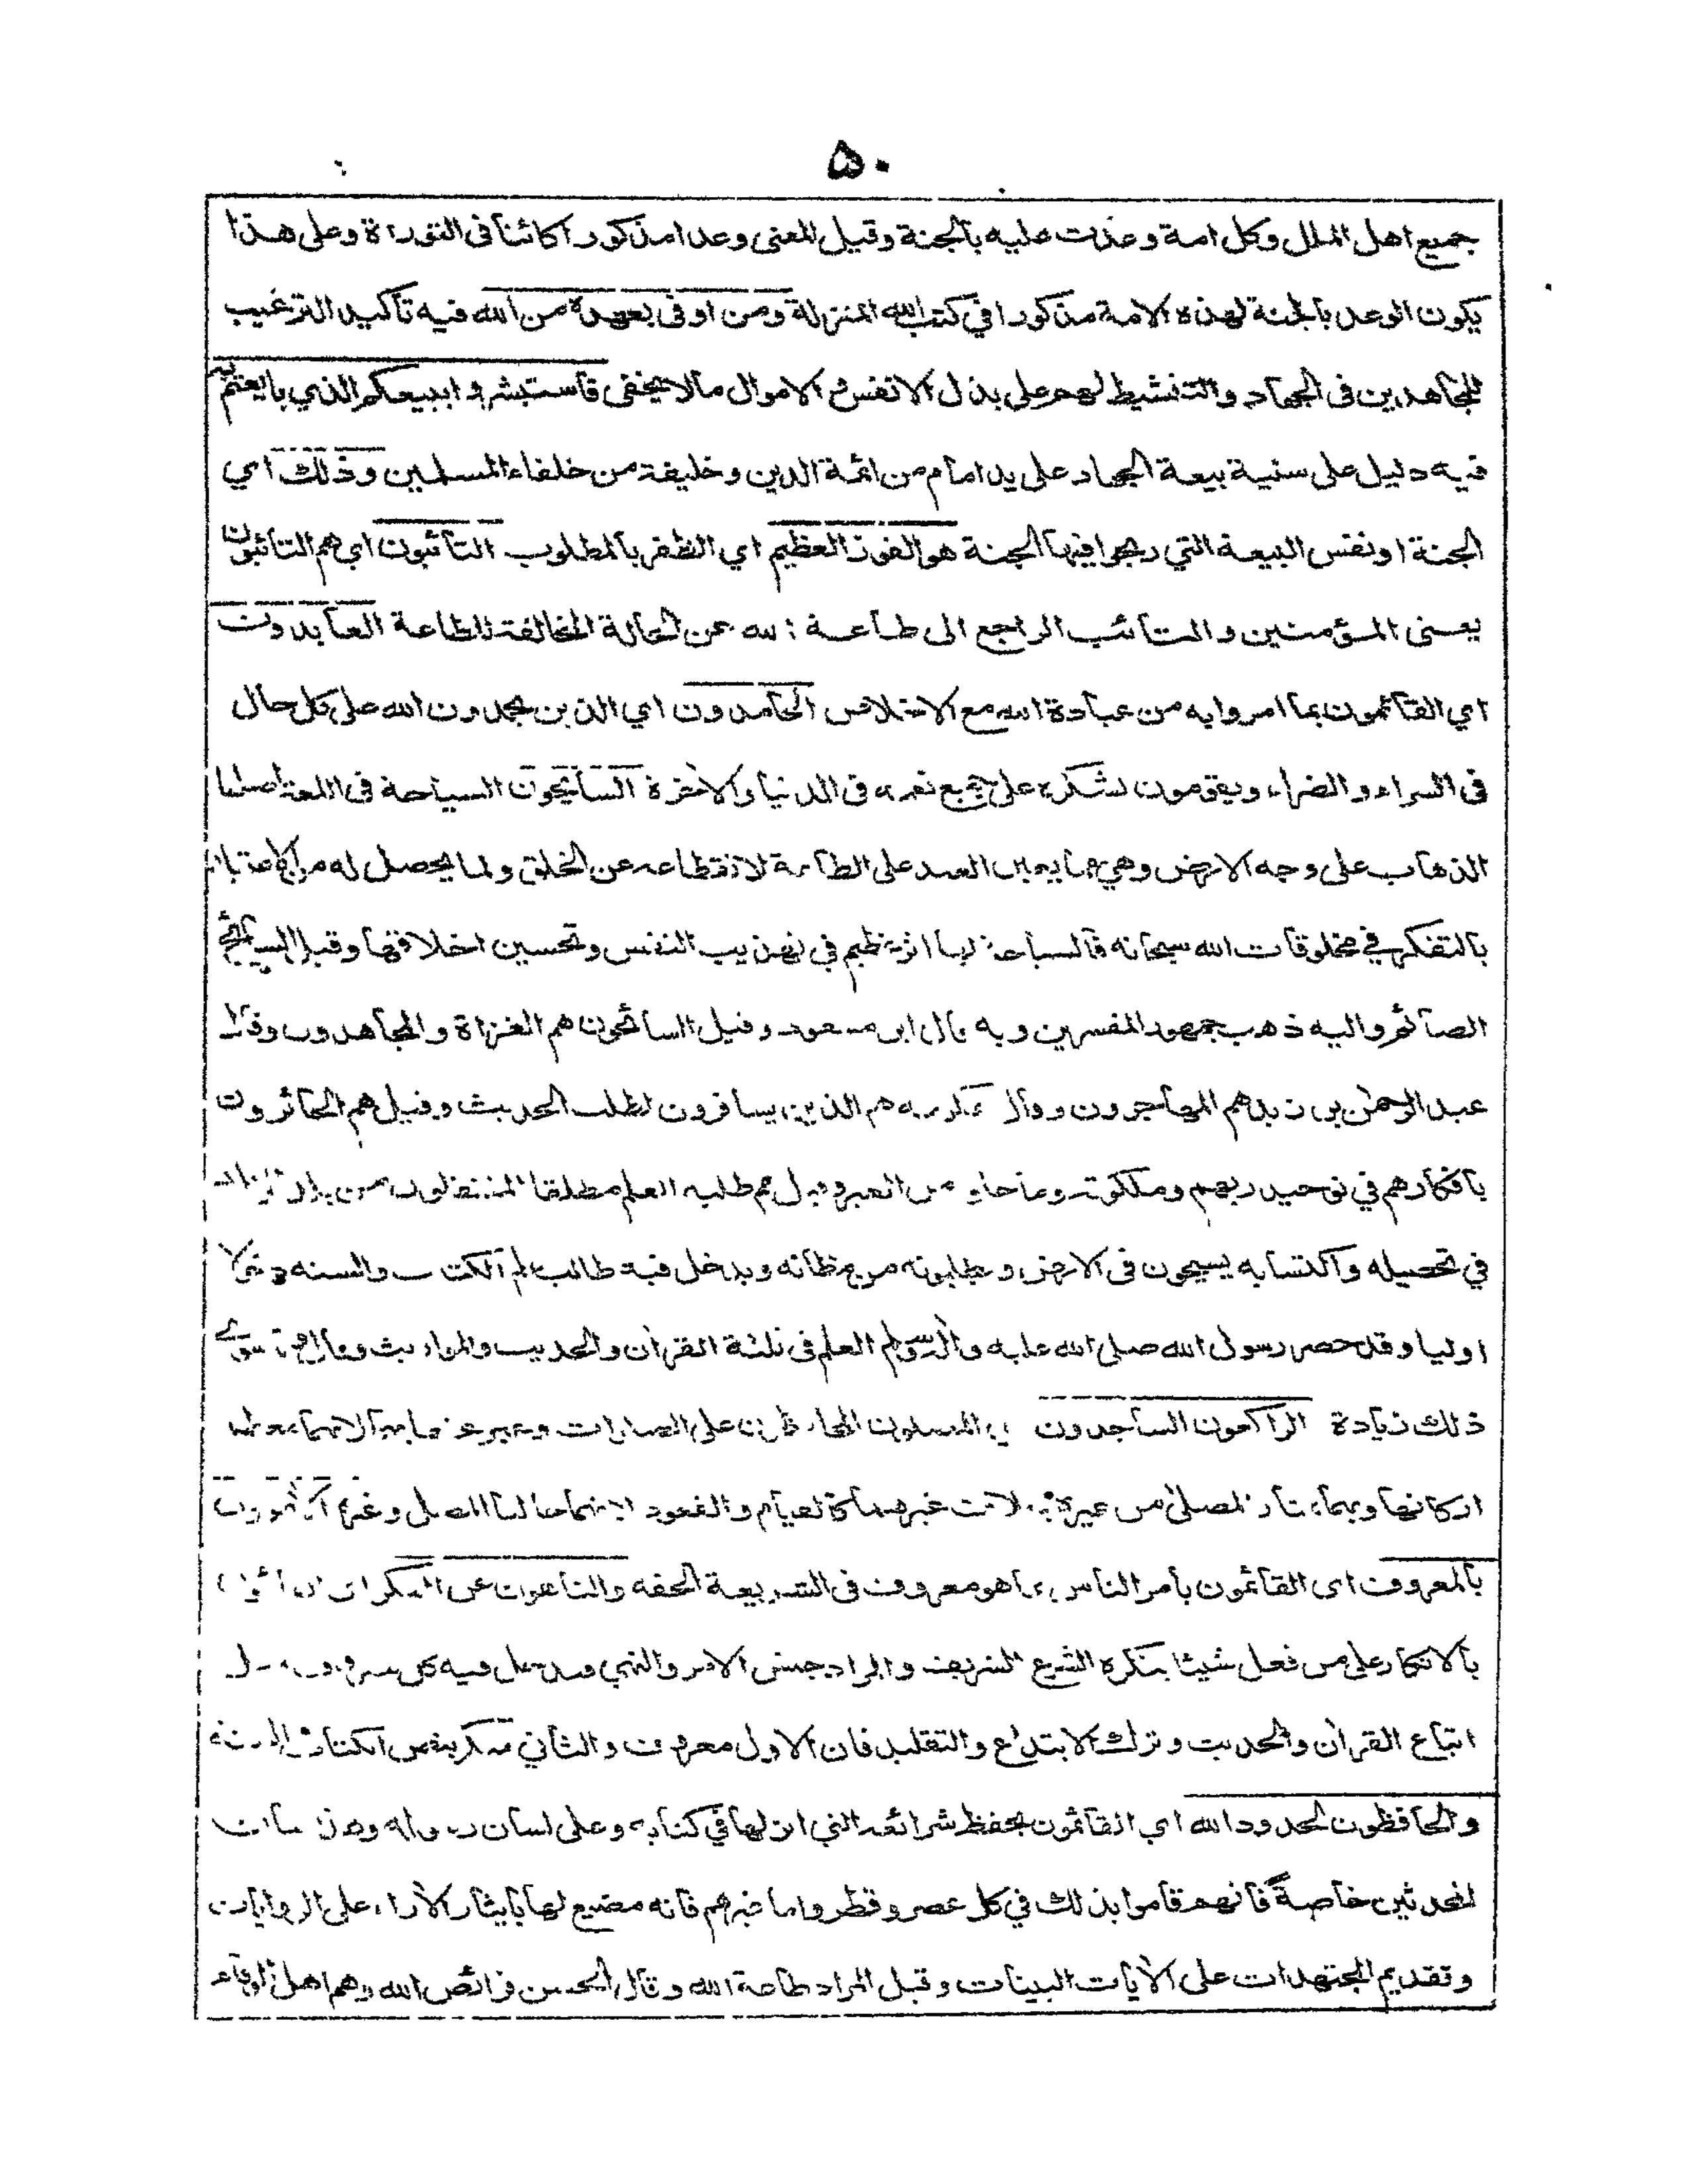 ۵۰
جميع اهل الملل وكل امة وعدت عليه بالجنة وقيل المعنى وعدا مذكورا كائنا فى التوراة وعلى هذا
يكون الوعد بالجنة لهذه الامة مذكورا في كتب الله المنزلة ومن اوفى بعهده من الله فيه تاكيد الترغيب
للمجاهدين فى الجهاد والتنشيط لهم على بذل الانفس والاموال مالا يخفى فاستبشروا ببيعكم الذي بايعتم به
فيه دليل على سنية بيعة الجهاد على يد امام من ائمة الدين وخليفة من خلفاء المسلمين وذلك اي
الجنة او نفس البيعة التي ربحوا فيها الجنة هو الفوز العظيم اي الظفر بالمطلوب التائبون اي هم التائبون
يعنى المؤمنين والتائب الراجع الى طاعة الله عن الحالة المخالفة للطاعة العابدون
اي القائمون بما امروا به من عبادة الله مع الاخلاص الحامدون اي الذين يحمدون الله على كل حال
فى السراء والضراء ويقومون لشكره على جميع نعمه فى الدنيا والاخرة السائحون السياحة فى اللغة اصلها
الذهاب على وجه الارض وهي مما يعين العبد على الطاعة لانقطاعه عن الخلق ولما يحصل له من الاعتبار
بالتفكر في مخلوقات الله سبحانه فالسياحة لها اثر عظيم في تهذيب النفس وتحسين اخلاقها وقيل السائح
الصائم واليه ذهب جمهور المفسرين وبه قال ابن مسعود وقيل السائحون هم الغزاة والمجاهدون وقال
عبد الرحمن بن زيد هم المهاجرون وقال عكرمه هم الذين يسافرون لطلب الحديث وقيل هم الجائرون
بافكارهم في توحيد ربهم وملكوته وما خلق من العبر وقيل هم طلبه العلم مطلقا المنتقلون من بلد
في تحصيله واكتسابه يسيحون فى الارض ويطلبونه من مظانه ويدخل فيه طالب علم الكتاب والسنه دخولا
اوليا وقد حصر رسول الله صلى الله عليه واله وسلم العلم فى ثلثة القران والحديث والمواريث وقال ما سوى
ذلك زيادة الراكعون الساجدون اي المصلون المحافظون على الصلوات وعبر عنها بهما لانهما معظم
اركانها وبهما يمتاز المصلى من غيره بخلاف غيرهما كالقيام والقعود لانهما حالتا المصلى وغيره الآمرون
بالمعروف اى القائمون بامر الناس بما هو معروف فى الشريعة الحقه والناهون عن المنكر اي القائمون
بالانكار على من فعل شيئا ينكره الشرع الشريف والمراد جنس الامر والنهي ويدخل فيه كل
اتباع القران والحديث وترك الابتداع والتقليد فان الاول معروف والثاني منكر بنص الكتاب والسنة
والحافظون لحدود الله اي القائمون بحفظ شرائعه التي انزلها في كتابه وعلى لسان رسوله وهذه
للمحدثين خاصةً فانهم قاموا بذلك في كل عصر وقطر واما غيرهم فانه مضيع لها بايثار الآراء على الروايات
وتقديم المجتهدات على الآيات البينات وقيل المراد طاعة الله وقال الحسن فرائض الله وهم اهل الوفاء